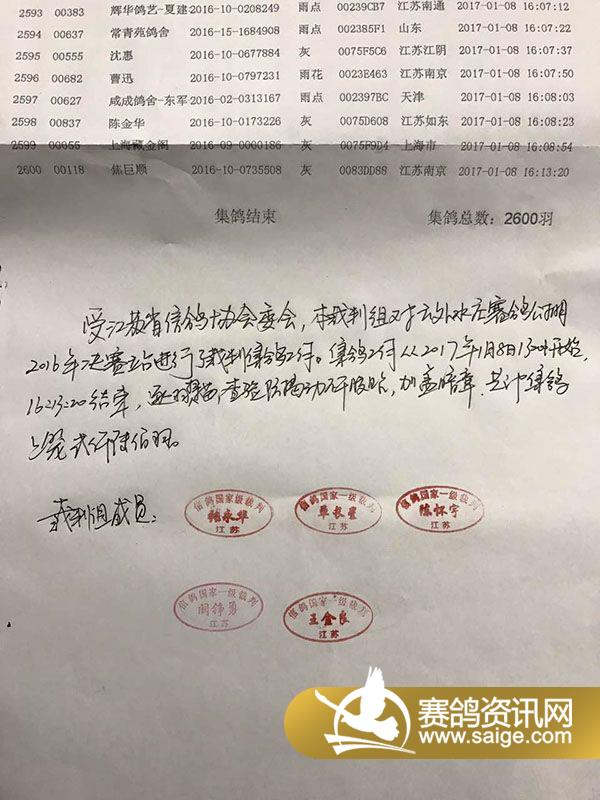 2593 00383 辉华鸽艺-夏建 2016-10-0208249 雨点 00239CB7 江苏南通 2017-01-08 16:07:12
2594 00637 常青苑鸽舍 2016-15-1684908 雨点 002385F1 山东 2017-01-08 16:07:22
2595 00555 沈惠 2016-10-0677884 灰 0075F5C6 江苏江阴 2017-01-08 16:07:37
2596 00682 曹迅 2016-10-0797231 雨花 0023E463 江苏南京 2017-01-08 16:07:50
2597 00627 咸成鸽舍-东军 2016-02-0313167 雨点 002397BC 天津 2017-01-08 16:08:03
2598 00837 陈金华 2016-10-0173226 灰 0075D608 江苏如东 2017-01-08 16:08:23
2599 00055 上海藏金阁 2016-09-0000186 灰 0075F9D4 上海市 2017-01-08 16:08:54
2600 00118 焦巨顺 2016-10-0735508 灰 0083DD88 江苏南京 2017-01-08 16:13:20
集鸽结束 集鸽总数：2600羽
受江苏省信鸽协会委会，本裁判组对云外水庄赛鸽公棚
2016年决赛 进行了裁判集鸽工作。集鸽工作从2017年1月8日13:30开始，
16:13:20结束， 查验 ，加盖暗章，共计集鸽
上笼贰仟陆佰羽。
裁判组成员：
信鸽国家一级裁判 江苏
信鸽国家一级裁判 江苏
信鸽国家一级裁判 陈怀宇 江苏
信鸽国家一级裁判 江苏
信鸽国家一级裁判 王金良 江苏
赛鸽资讯网
www.saige.com